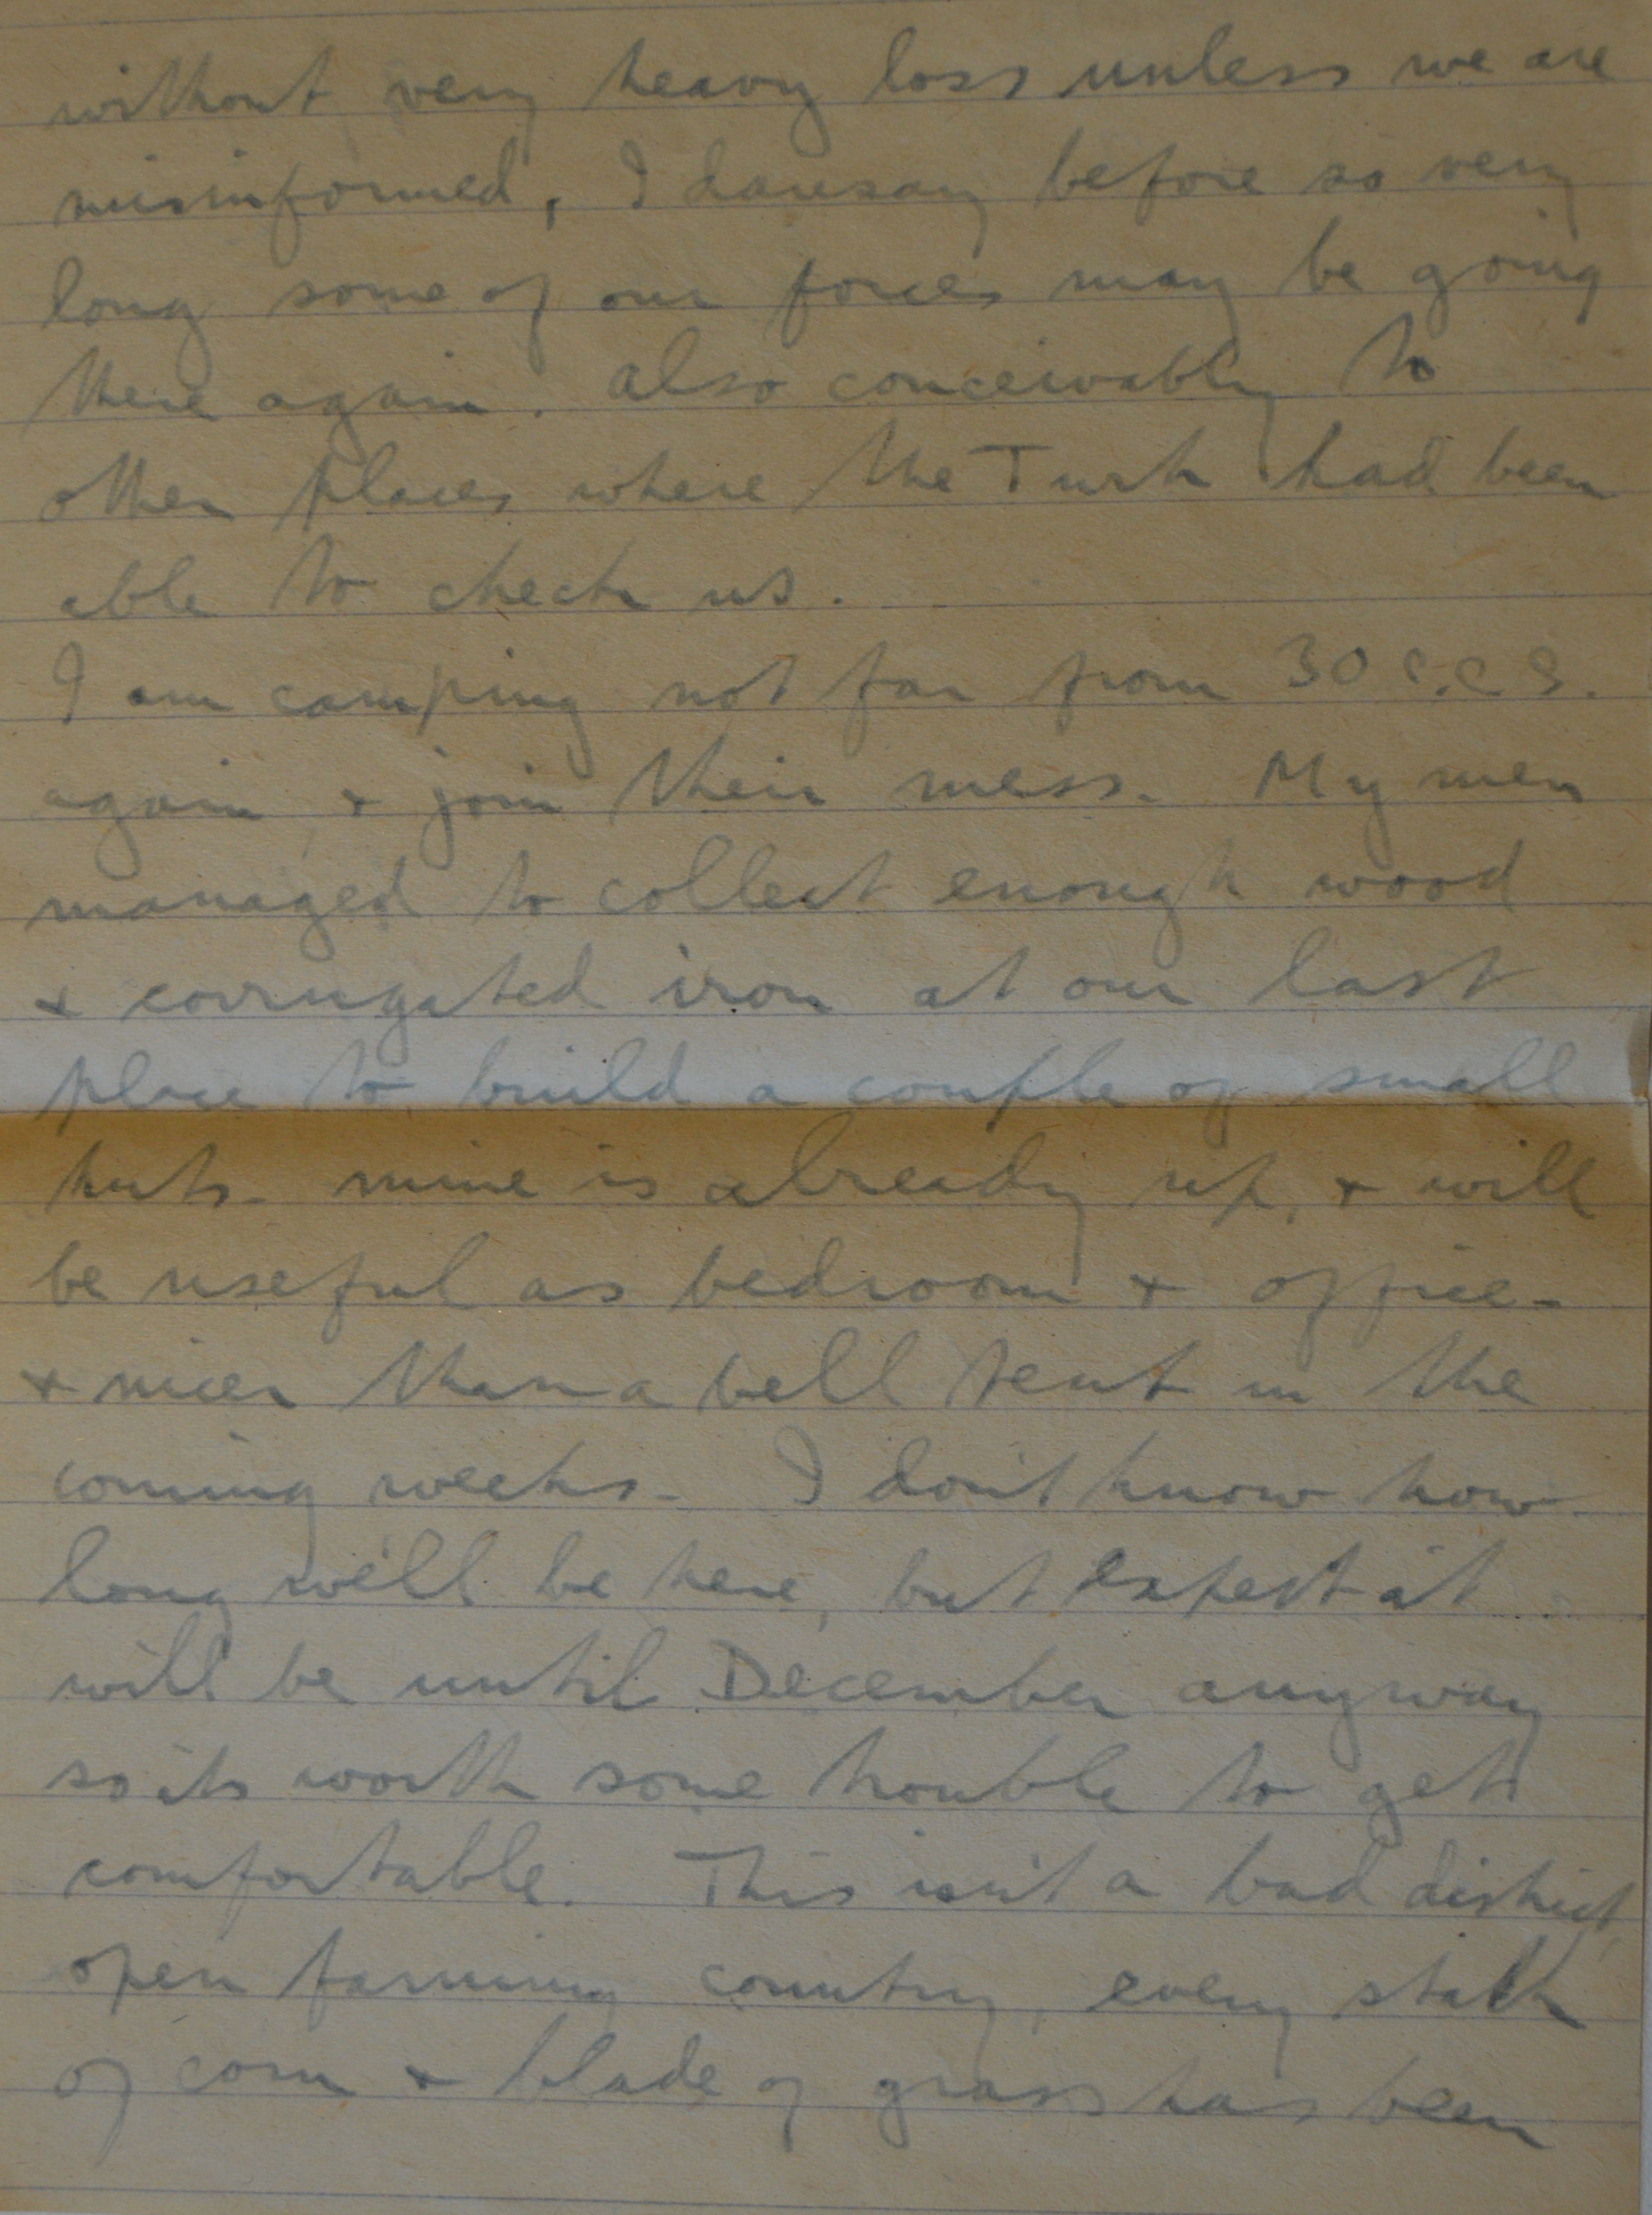 without very heavy loss unless we are
misinformed, I daresay before so very
long some of our forces may be going
there again. also conceivably to
other places where the Turk had been
able to check us.
I am camping not far from 30 C.C.S.
again & join their mess. My men
managed to collect enough wood
& corrugated iron at our last
place to build a couple of small
huts - mine is already up, & will
be useful as bedroom & office -
& nicer than a bell tent in the
coming weeks - I don't know how
long we'll be here, but expect it
will be until December anyway
so its worth some trouble to get
comfortable. This isn't a bad district,
open farming country, every stalk
of corn & blade of grass has been